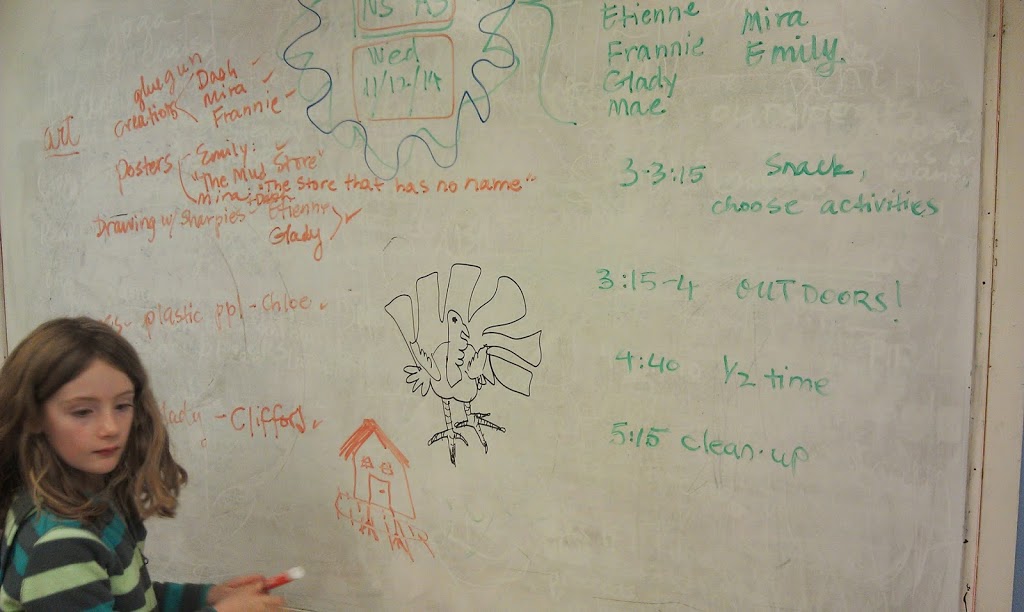 Wed
11/12/14
Etienne
Frannie
Glady
Mae
Mira
Emily.
art
gluegun
creations
Dash
Mira
Frannie
posters
Emily:
"The Mud Store"
mira + Dash "The store that has no name"
Drawing w/ sharpies - Etienne
Glady
plastic ppl - Chloe
lady - Clifford
3-3:15 Snack,
choose activities
3:15-4 OUTDOORS!
4:40 1/2 time
5:15 clean-up